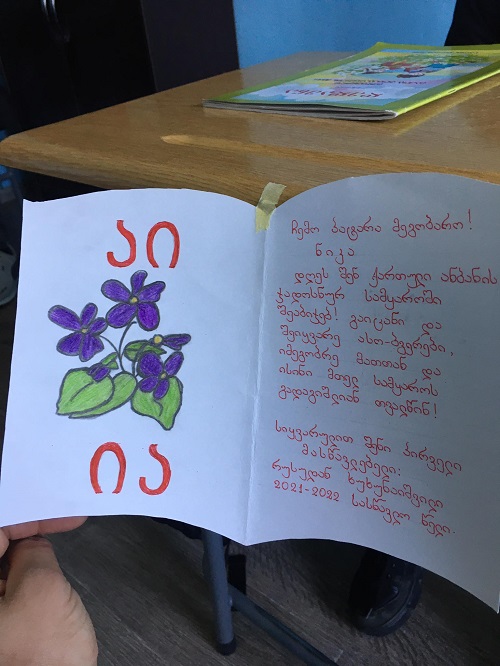 აი
ია
ჩემო პატარა მეგობარო!
ნიკა
დღეს შენ ქართული ანბანის
ჯადოსნურ სამყაროში
შეაბიჯებ! გაიცანი და
შეიყვარე ასო-ბგერები,
იმეგობრე მათთან და
ისინი მთელ სამყაროს
გადაგიშლიან თვალწინ!
სიყვარულით შენი პირველი
მასწავლებელი:
რუსუდან ხუხუნაიშვილი
2021-2022 სასწავლო წელი.